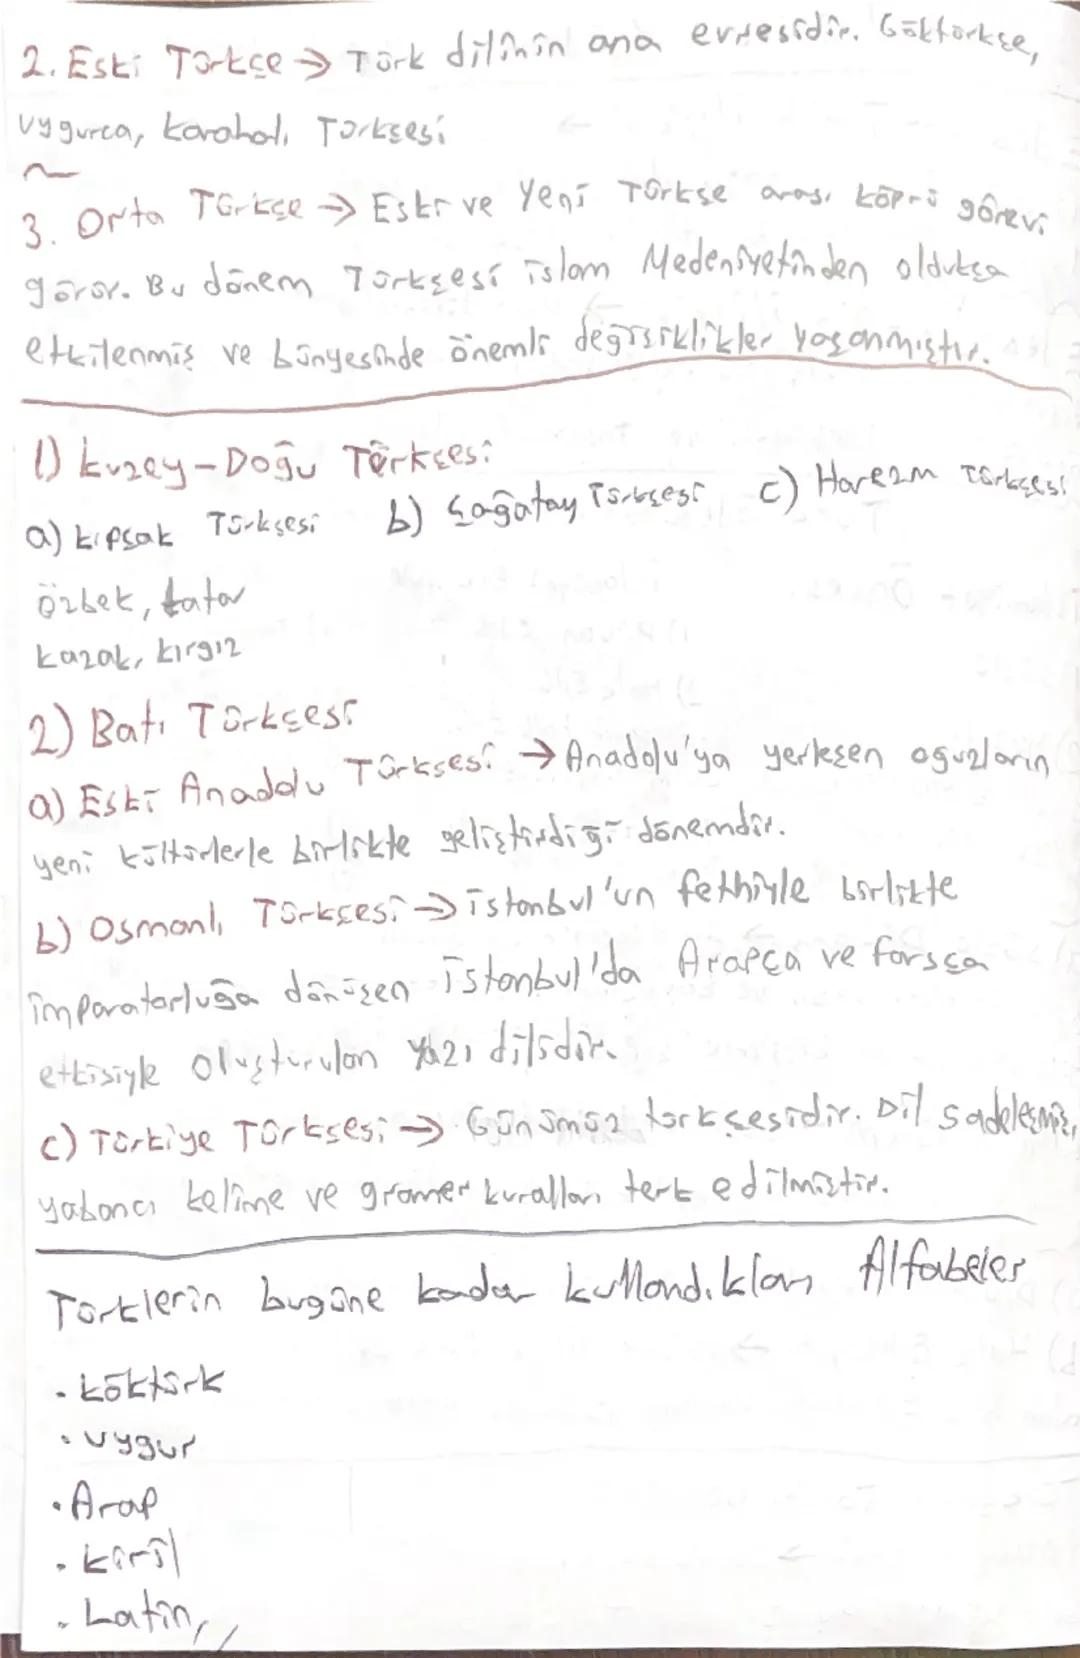 2. Eski Türkçe → Türk dilinin ana evresidir. Göktürkçe,
Uygurca, Karahalı Türkçesi
3. Orta Türkçe → Eski ve Yeni Türkçe arası köprü görevi
görür. Bu dönem Türkçesi İslam Medeniyetinden oldukça
etkilenmiş ve bünyesinde önemli değişiklikler yaşanmıştır.
1) Kuzey-Doğu Türkçesi
a) Kıpçak Türkçesi b) Çağatay Türkçesi c) Harezm Türkçesi
Özbek, tatar
Kazak, Kırgız
2) Batı Türkçesi
a) Eski Anadolu Türkçesi → Anadolu'ya yerleşen oğuzların
yeni kültürlerle birlikte geliştirdiği dönemdir.
b) Osmanlı Türkçesi → İstanbul'un fethiyle birlikte
imparatorluğa dönüşen İstanbul'da Arapça ve farsça
etkisiyle oluşturulan yazı dilidir.
c) Türkiye Türkçesi → Günümüz türkçesidir. Dil sadeleşmiş,
yabancı kelime ve gramer kuralları terk edilmiştir.
Türklerin bugüne kadar kullandıkları Alfabeler
• Köktürk
• Uygur
• Arap
• Kiril
• Latin,,